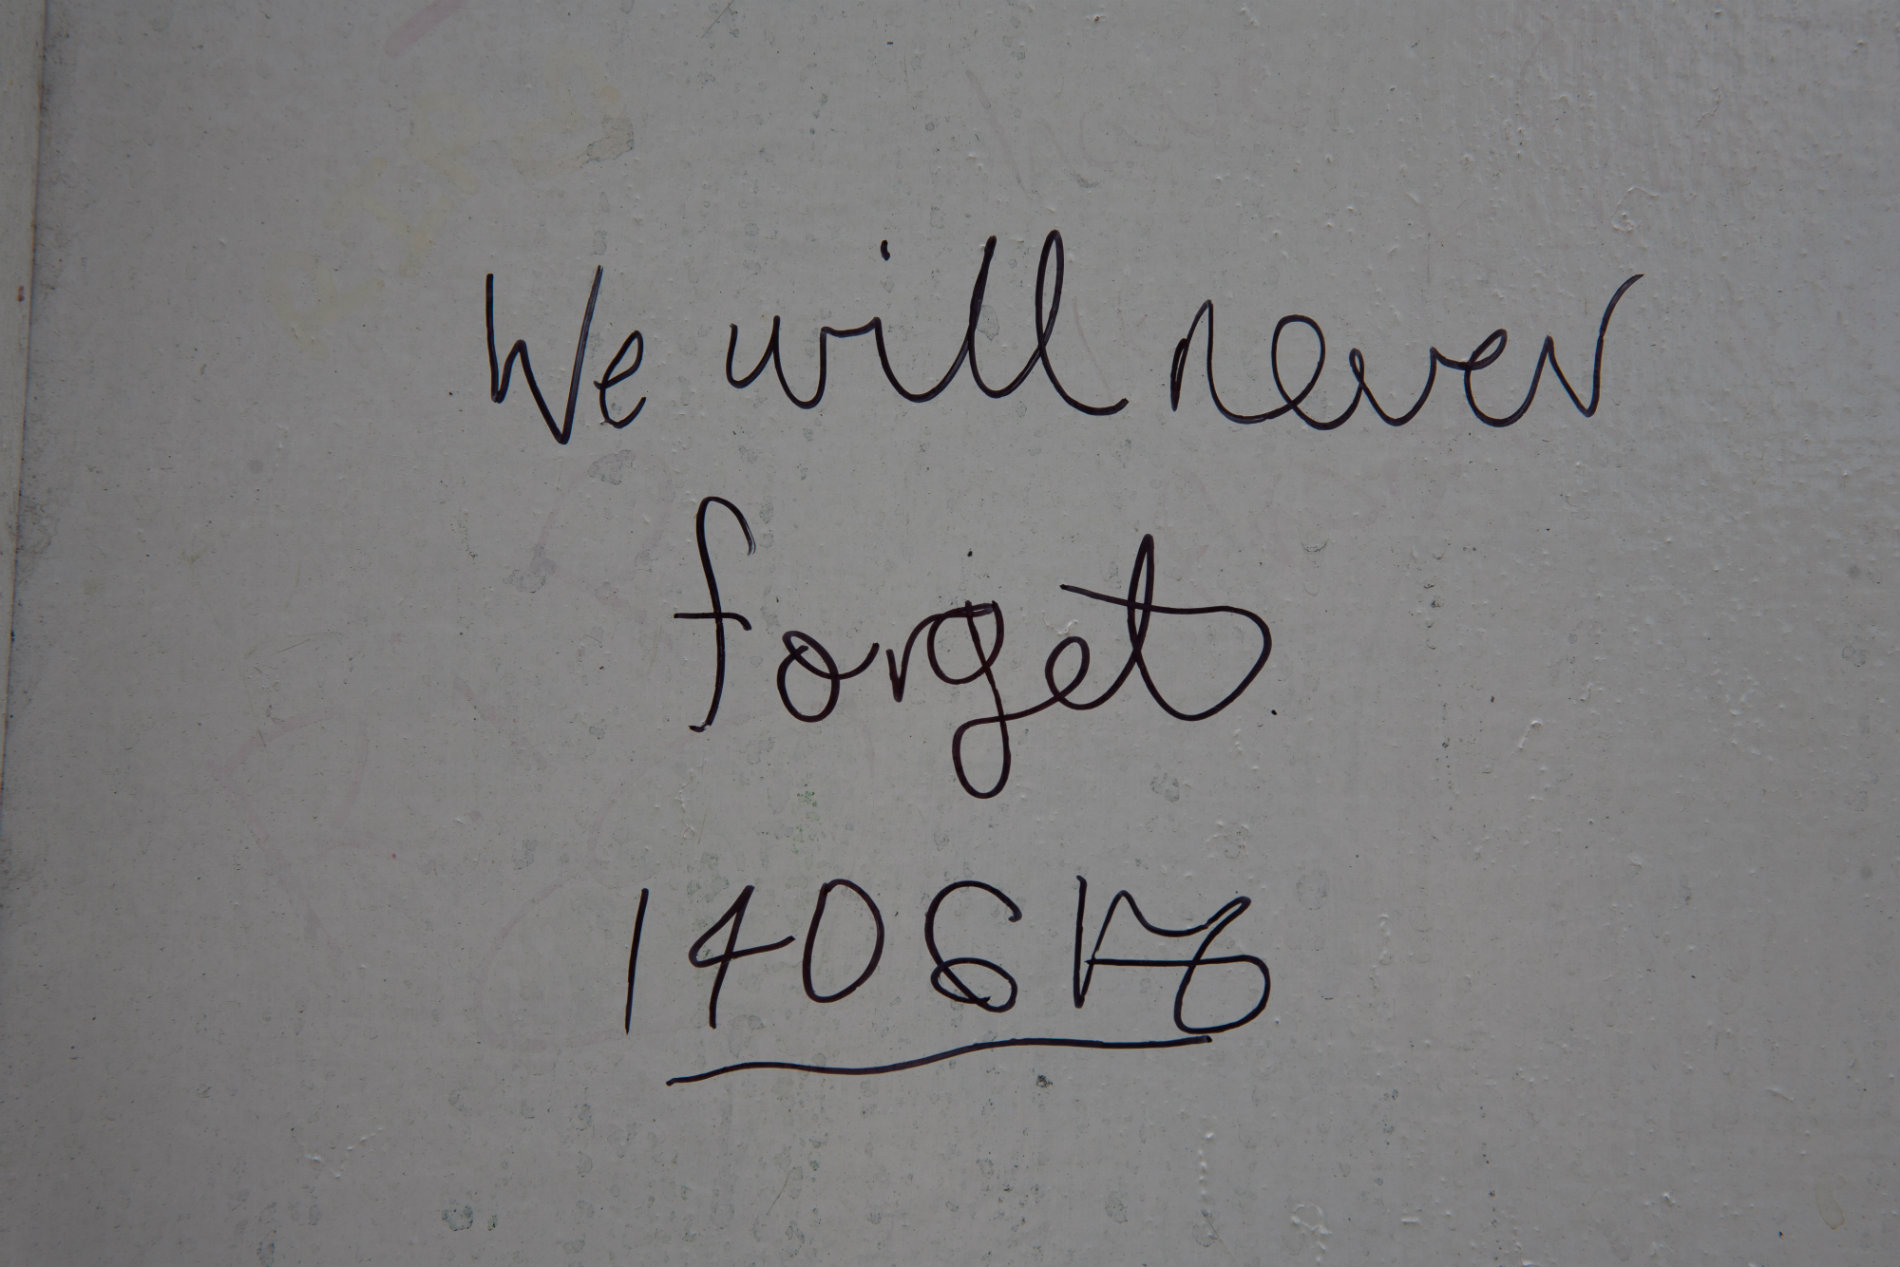 We will never
forget
140617